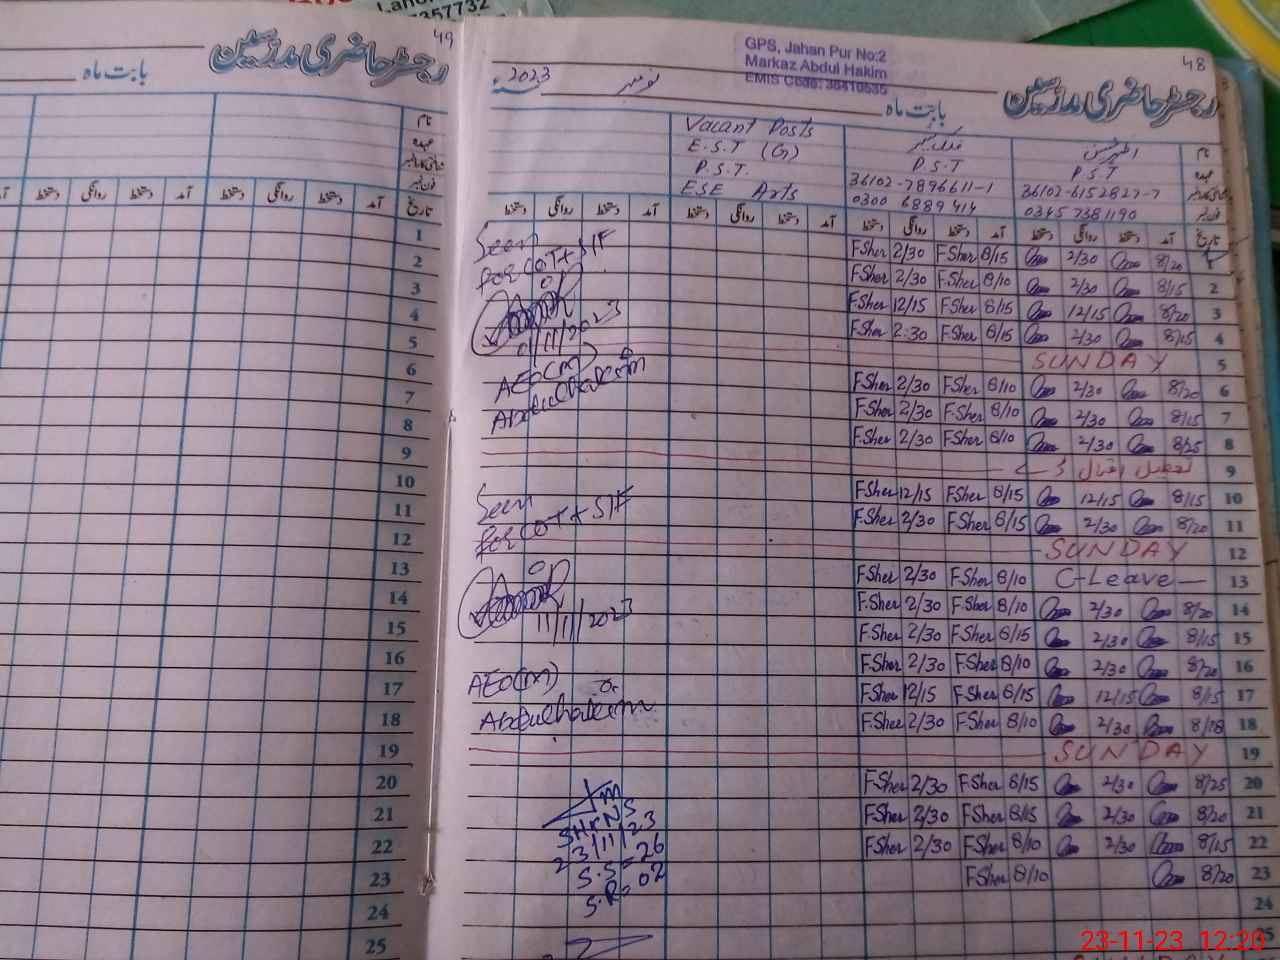 Lahor
7357732
49
رجسٹر حاضری مدرسین
بابت ماہ
نام
عہدہ
شناختی کارڈ نمبر
فون نمبر
تاریخ
آمد
دستخط
روانگی
دستخط
آمد
دستخط
روانگی
دستخط
1
2
3
4
5
6
7
8
9
10
11
12
13
14
15
16
17
18
19
20
21
22
23
24
25
48
GPS, Jahan Pur No:2
Markaz Abdul Hakim
EMIS Code: 36410535
رجسٹر حاضری مدرسین
بابت ماہ نومبر 2023
نام
عہدہ P.S.T P.S.T Vacant Posts
E.S.T (G)
P.S.T.
ESE Arts
شناختی کارڈ نمبر 36102-6152827-7 36102-7896611-1
فون نمبر 0345 7381190 0300 6889414
تاریخ آمد دستخط روانگی دستخط آمد دستخط روانگی دستخط آمد دستخط روانگی دستخط آمد دستخط روانگی دستخط
1 8/20 2/30 8/15 F.Sher 2/30 F.Sher
2 8/15 2/30 8/10 F.Sher 2/30 F.Sher
3 8/20 12/15 8/15 F.Sher 12/15 F.Sher
4 8/15 2/30 8/15 F.Sher 2:30 F.Sher
5 SUNDAY
6 8/20 2/30 8/10 F.Sher 2/30 F.Sher
7 8/15 2/30 8/10 F.Sher 2/30 F.Sher
8 8/25 2/30 8/10 F.Sher 2/30 F.Sher
9 تعطیل اقبال ڈے
10 8/15 12/15 8/15 F.Sher 12/15 F.Sher
11 8/20 2/30 8/15 F.Sher 2/30 F.Sher
12 SUNDAY
13 C-Leave 8/10 F.Sher 2/30 F.Sher
14 8/20 2/30 8/10 F.Sher 2/30 F.Sher
15 8/15 2/30 8/15 F.Sher 2/30 F.Sher
16 8/20 2/30 8/10 F.Sher 2/30 F.Sher
17 8/15 12/15 8/15 F.Sher 12/15 F.Sher
18 8/18 2/30 8/10 F.Sher 2/30 F.Sher
19 SUNDAY
20 8/25 2/30 8/15 F.Sher 2/30 F.Sher
21 8/20 2/30 8/15 F.Sher 2/30 F.Sher
22 8/15 2/30 8/10 F.Sher 2/30 F.Sher
23 8/20 8/10 F.Sher
24
25
Seen
for COT + SIF
01/11/2023
AEO(m)
Abdulhakim
Seen
for COT + SIF
11/11/2023
AEO(m)
Abdulhakim
23/11/23
S.S = 26
S.R = 02
23-11-23 12:20